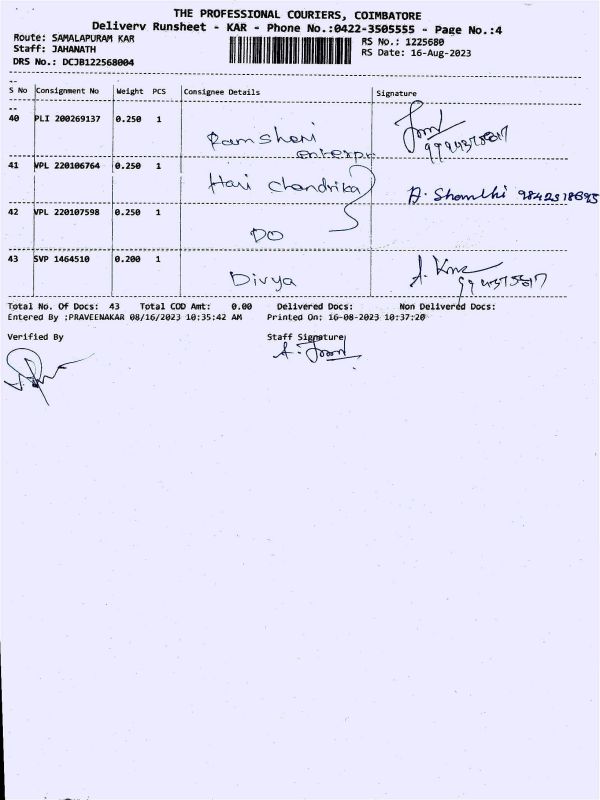 THE PROFESSIONAL COURIERS, COIMBATORE
Delivery Runsheet - KAR - Phone No.:0422-3505555 - Page No.:4
Route: SAMALAPURAM KAR
RS No.: 1225680
Staff: JAHANATH
RS Date: 16-Aug-2023
DRS No.: DCJB122568004
S No Consignment No Weight PCS Consignee Details Signature
40 PLI 200269137 0.250 1
enterpr
41 VPL 220106764 0.250 1
Hari Chandrika
42 VPL 220107598 0.250 1
DO
43 SVP 1464510 0.200 1
Divya
Total No. Of Docs: 43 Total COD Amt: 0.00 Delivered Docs: Non Delivered Docs:
Entered By :PRAVEENAKAR 08/16/2023 10:35:42 AM Printed On: 16-08-2023 10:37:20
Verified By Staff Signature